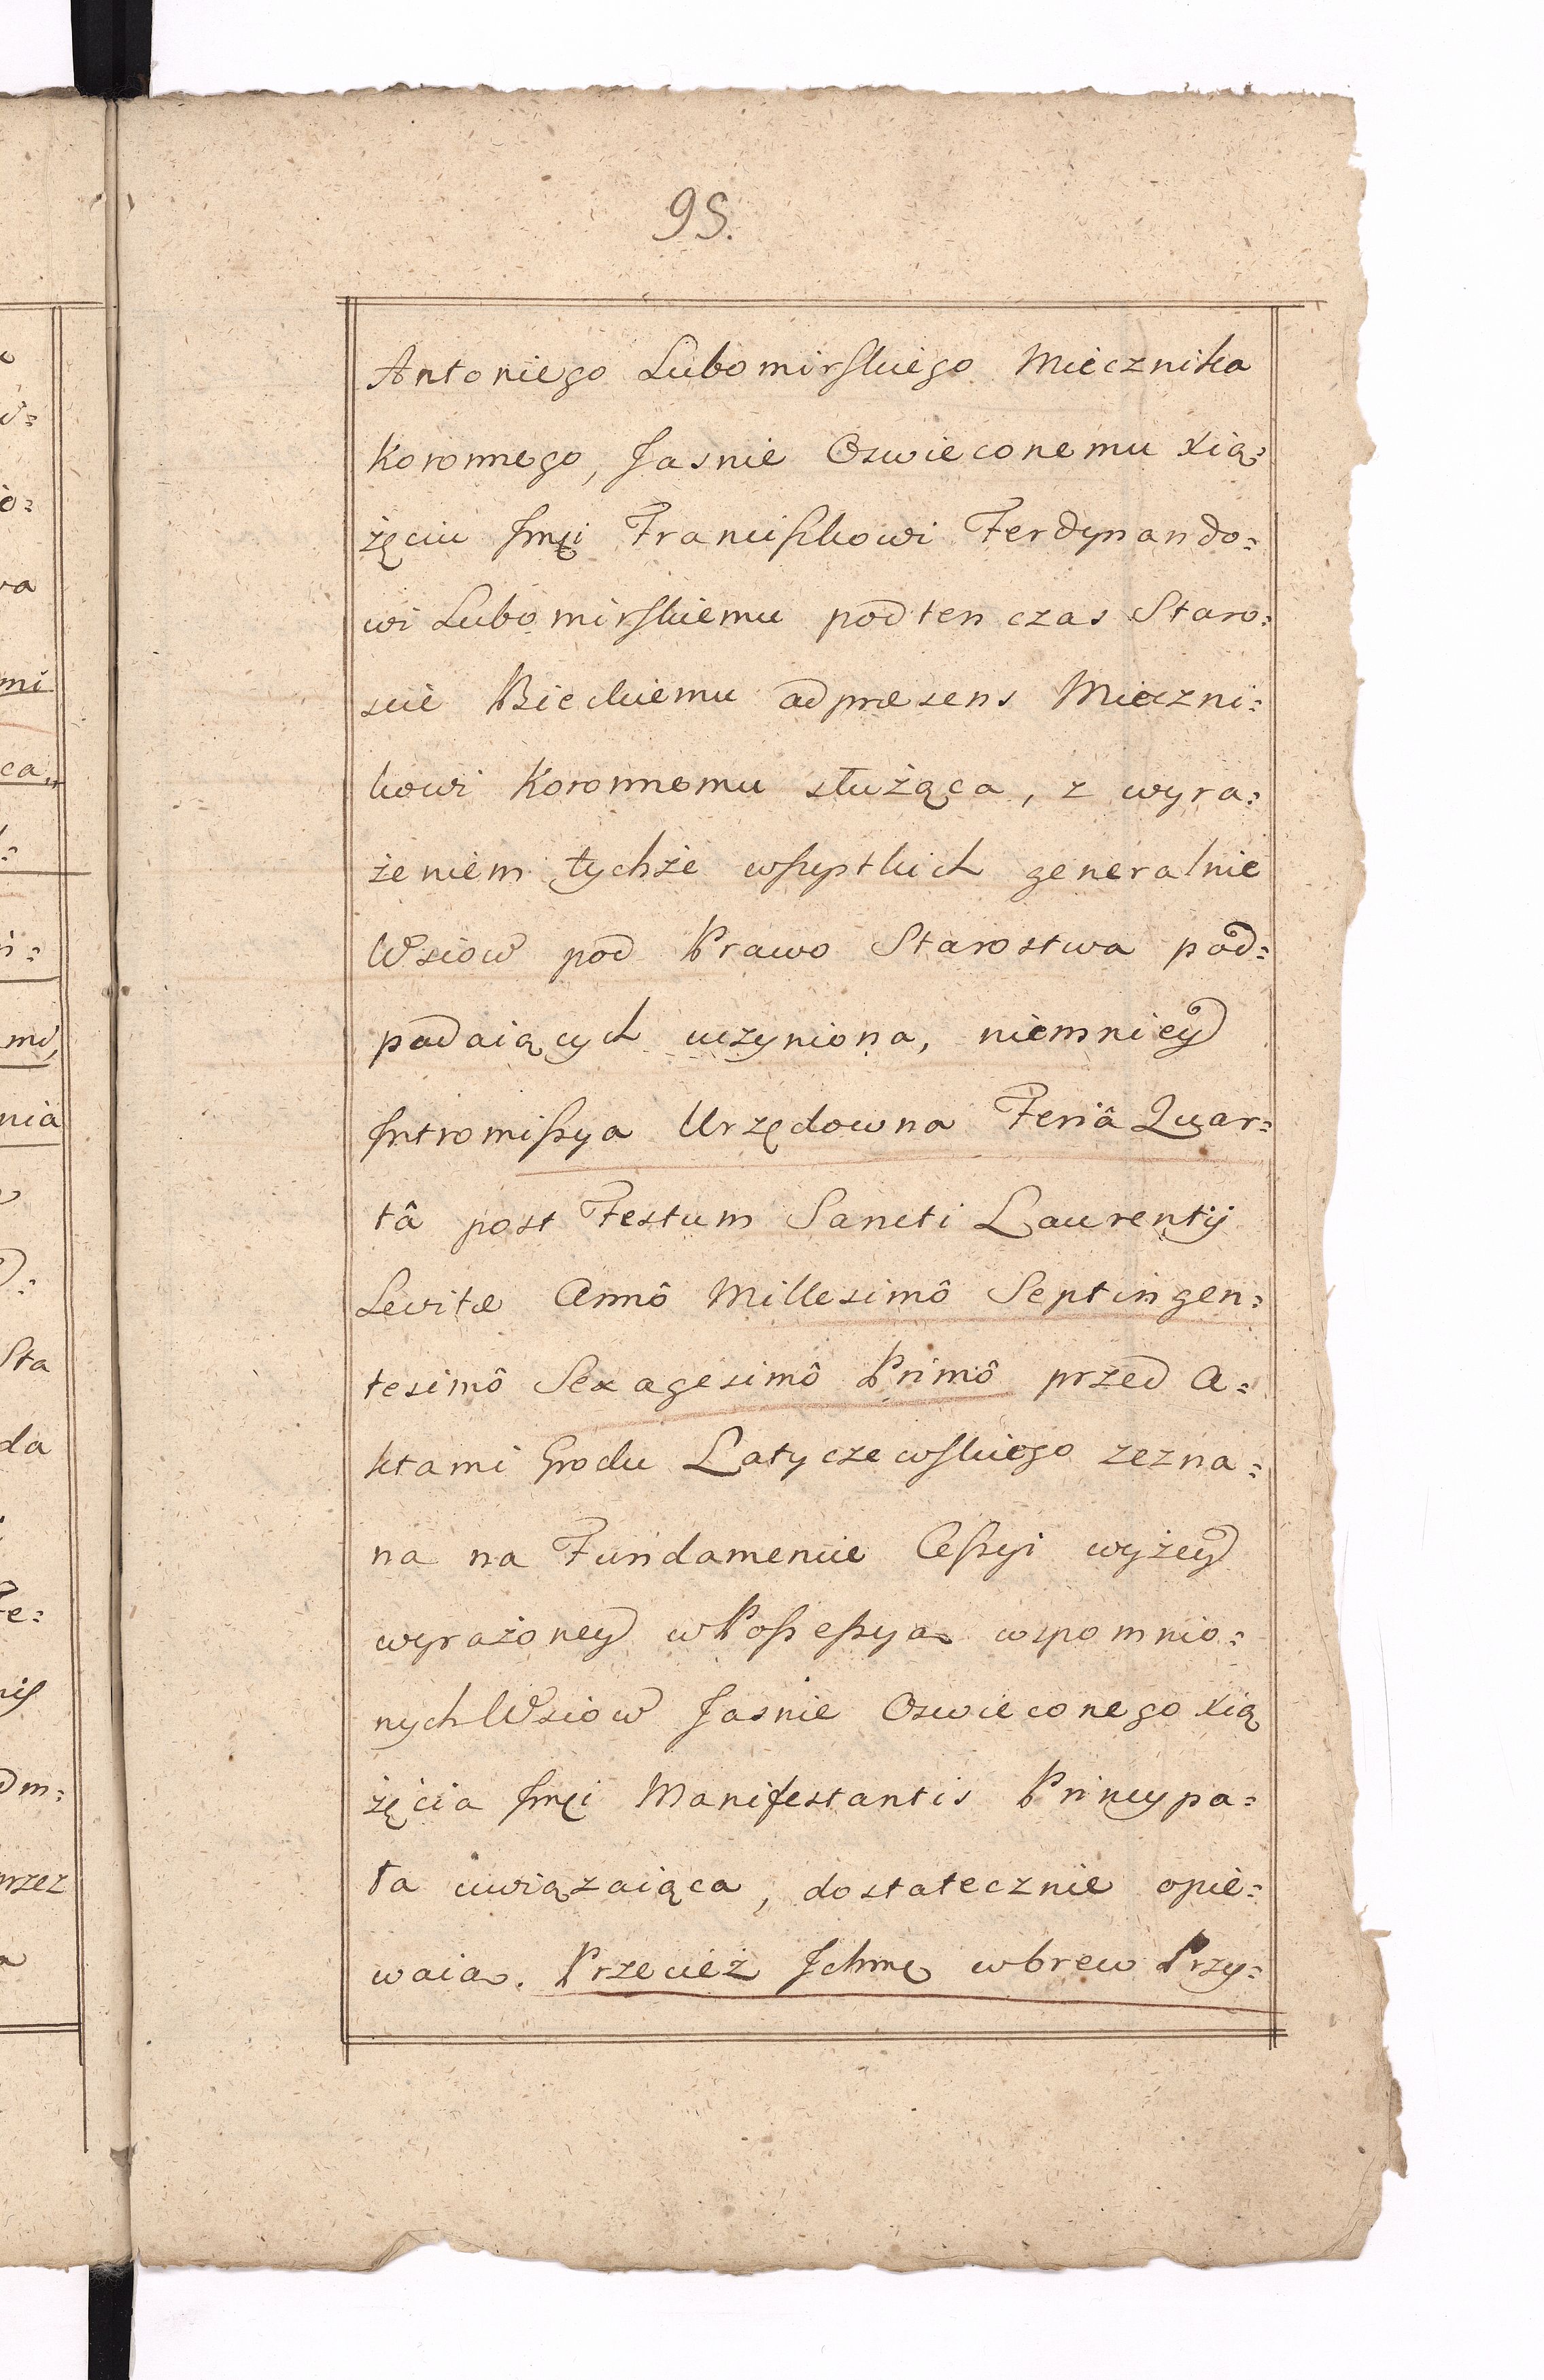 95.
Antoniego Lubomirskiego Miecznika
Koronnego, Jasnie Oswieconemu Xią:
żęciu Jmci Franciszkowi Ferdynando:
wi Lubomirskiemu pod ten czas Staro:
scie Bieckiemu ad præsens Mieczni:
kowi Koronnemu służąca, z wyra:
żeniem tychże wszystkich generalnie
Wsiow pod Prawo Starostwa pod:
padaiących uczyniona, niemniey
Intromissya Urzędowna Feriâ Quar:
tâ post Festum Sancti Laurentij
Levitæ Annô Millesimô Septingen:
tesimô Sexagesimô Primô przed A:
ktami Grodu Latyczewskiego zezna:
na na Fundamencie Cessyi wyżey
wyrażoney w Possessyą wspomnio:
nych Wsiow Jasnie Oswieconego Xią
żęcia Jmci Manifestantis Pryncypa:
ła uwiązaiąca, dostatecznie opie:
waią. Przecież Ichmc wbrew Przy:
mi
ca,,
nia
Sta
da
Fe:
dm:
przez